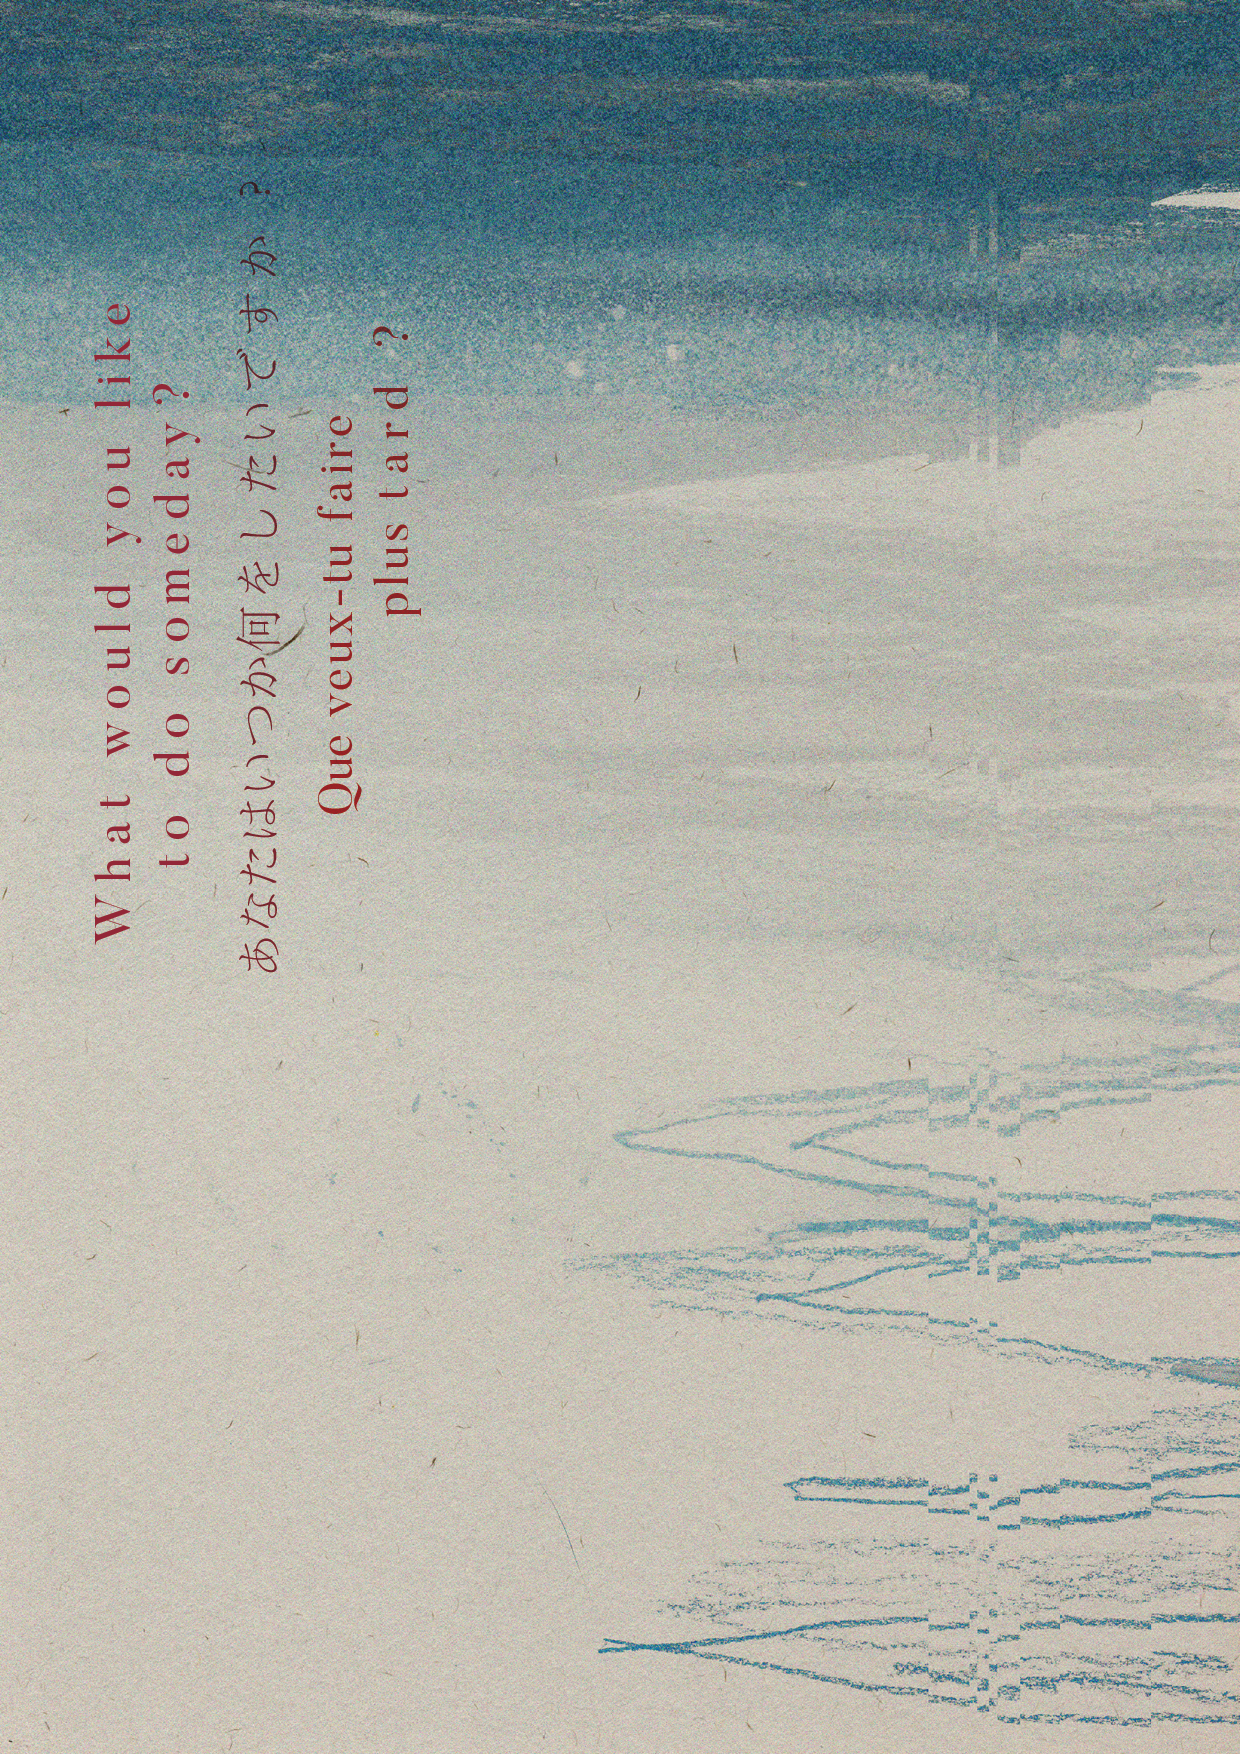 What would you like
to do someday?
あなたはいつか何をしたいですか？
Que veux-tu faire
plus tard ?